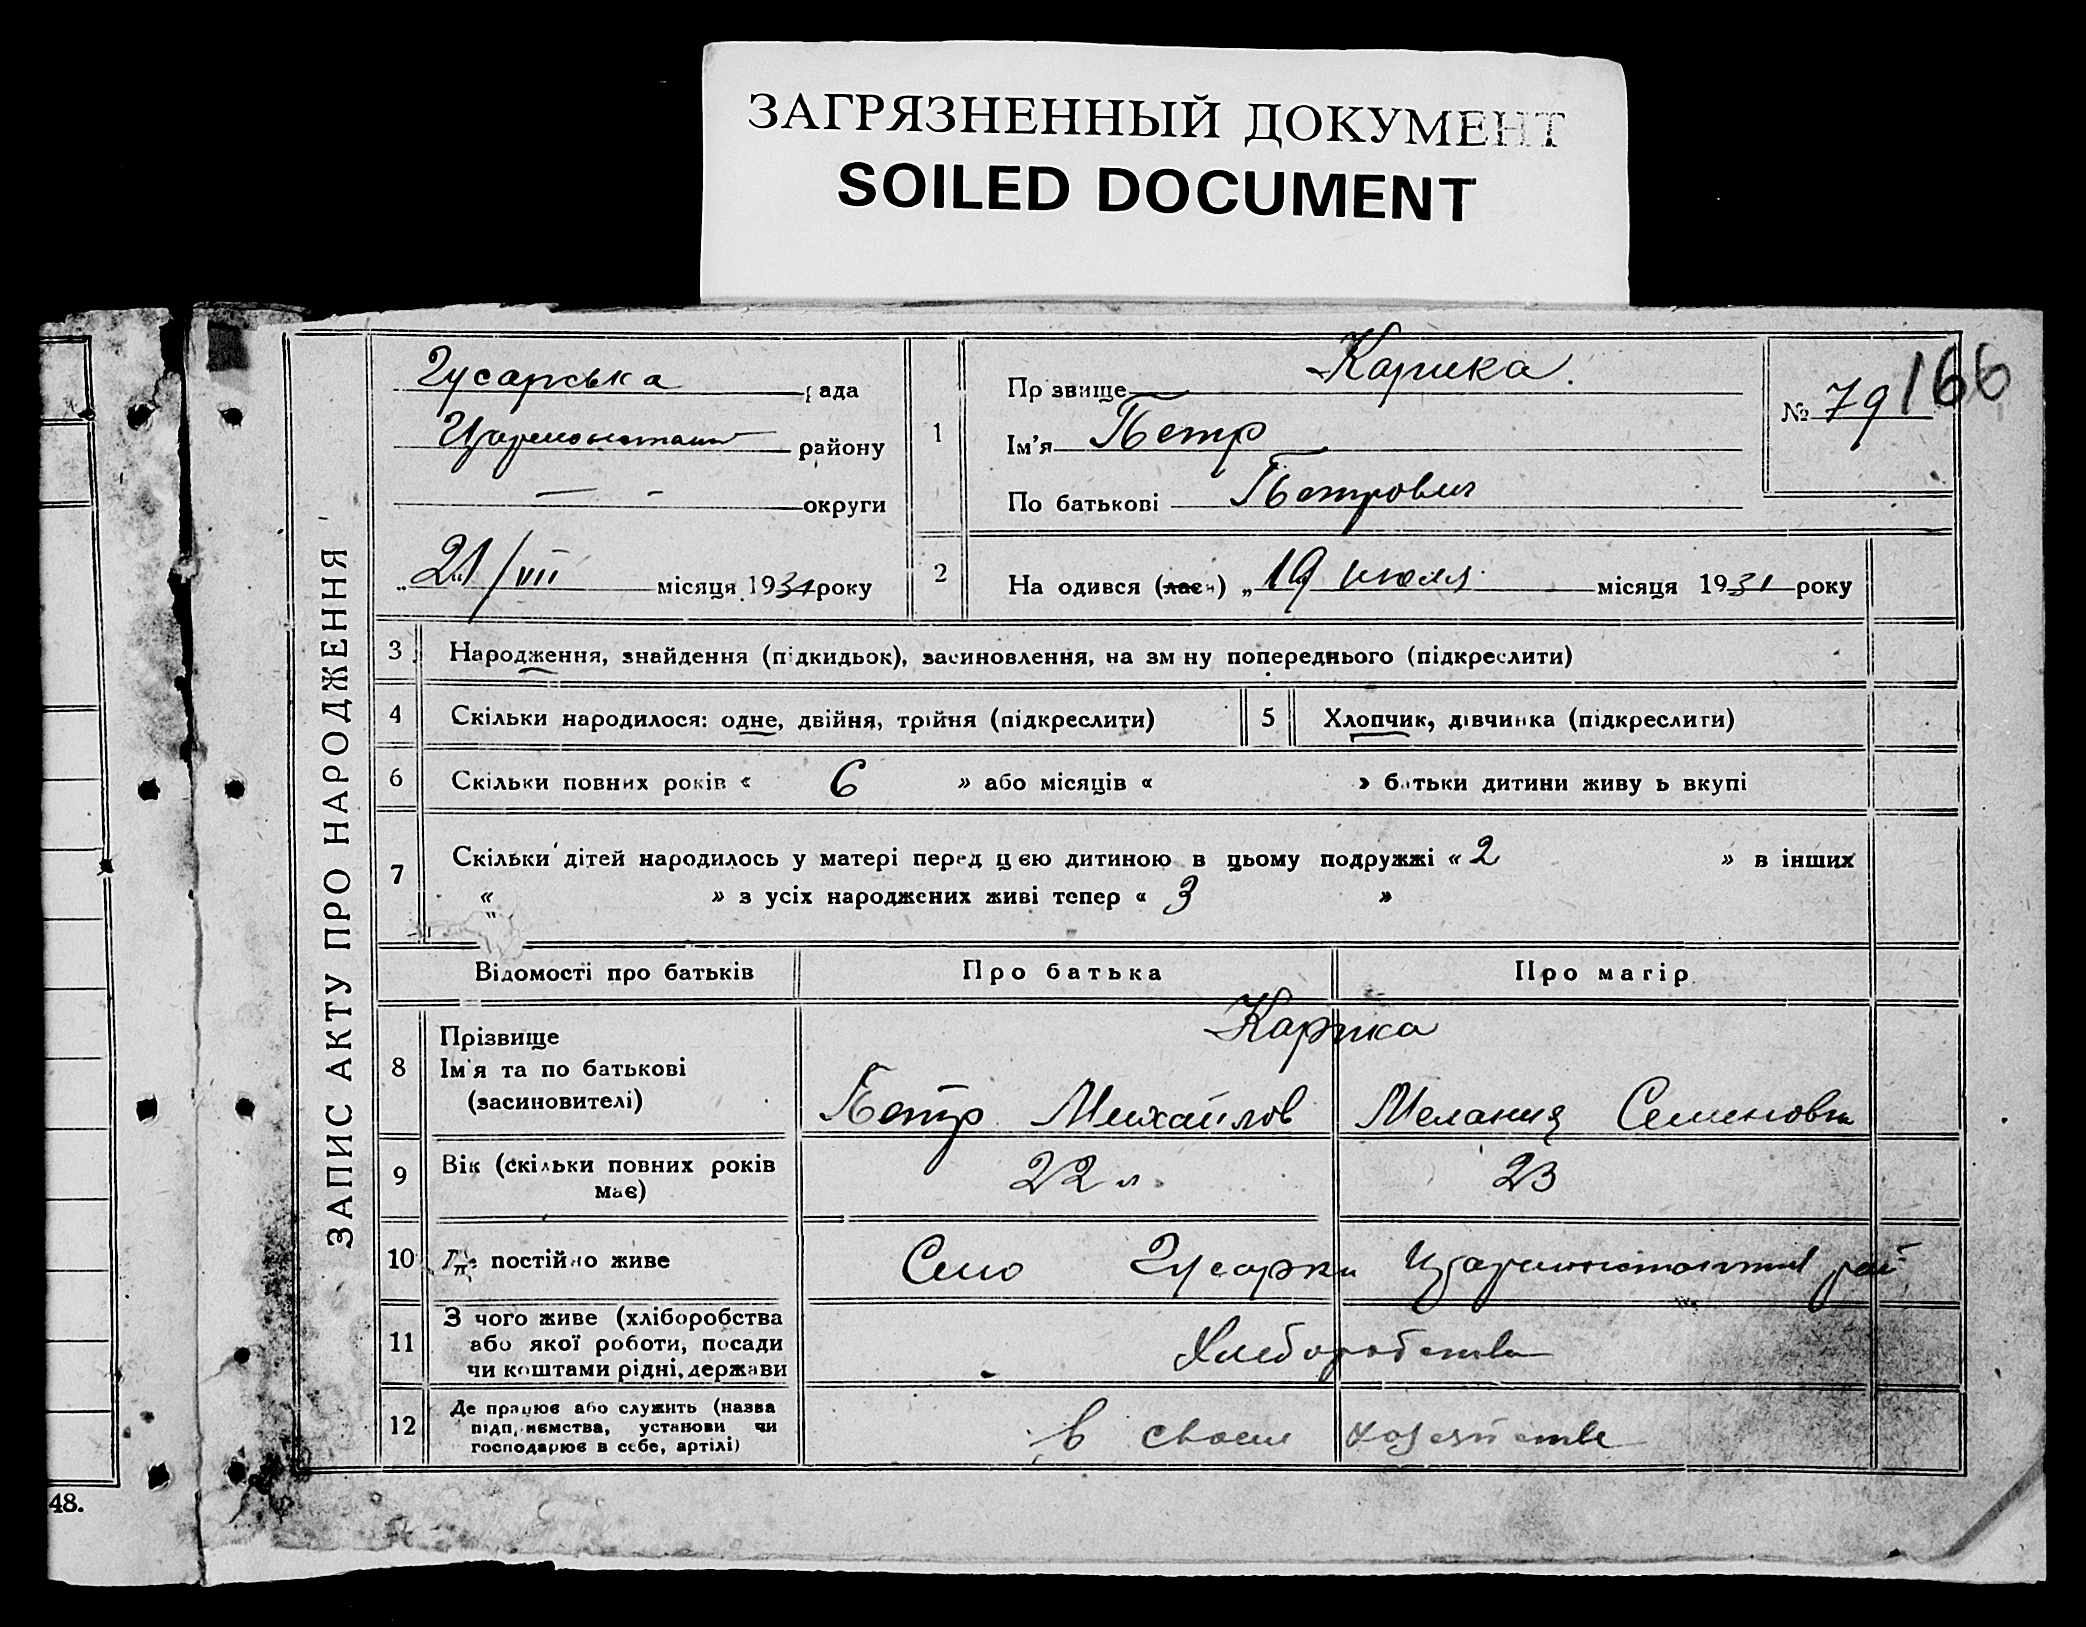 ЗАГРЯЗНЕННЫЙ ДОКУМЕНТ
SOILED DOCUMENT
166
ЗАПИС АКТУ ПРО НАРОДЖЕННЯ
Гусарська рада
району
— - округи
„21/VII місяця 1931 року
1
Прізвище Карика.
Ім'я Петр
По батькові Петрович
№ 79
2 На одився (лась) „19 июля місяця 1931 року
3 Народження, знайдення (підкидьок), засиновлення, на зміну попереднього (підкреслити)
4 Скільки народилося: одне, двійня, трійня (підкреслити)
5 Хлопчик, дівчинка (підкреслити)
6 Скільки повних років « 6 » або місяців « » батьки дитини живуть вкупі
7 Скільки дітей народилось у матері перед цією дитиною в цьому подружжі « 2 » в інших
« » з усіх народжених живі тепер « 3 »
Відомості про батьків Про батька Про матір
8 Прізвище
Ім'я та по батькові
(засиновителі)
Карика
Петр Михайлов Мелания Семеновна
9 Вік (скільки повних років
має)
22 л. 23
10 Де постійно живе Село Гусарки рай
11 З чого живе (хліборобства
або якої роботи, посади
чи коштами рідні, держави
Хлеборобства
12 Де працює або служить (назва
підприємства, установи чи
господарює в себе, артілі)
в своем хозяйстве
48.